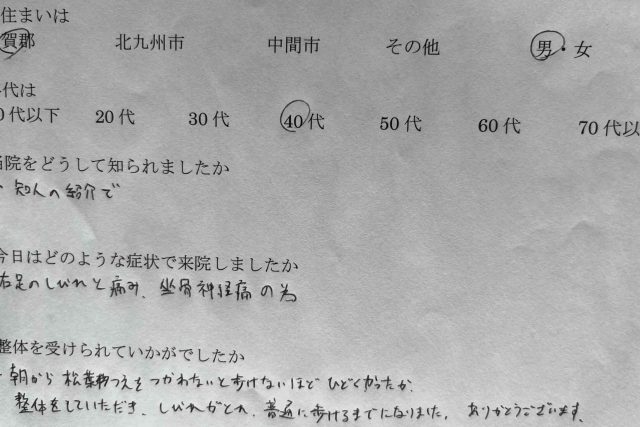 住まいは
賀郡 北九州市 中間市 その他 男・女
代は
0代以下 20代 30代 40代 50代 60代 70代以
当院をどうして知られましたか
・知人の紹介で
今日はどのような症状で来院しましたか
右足のしびれと痛み、坐骨神経痛の為
整体を受けられていかがでしたか
・朝から松葉杖つえをつかわないと歩けないほどひどくかったが、
整体をしていただき、しびれがとれ、普通に歩けるまでになりました。ありがとうございます。